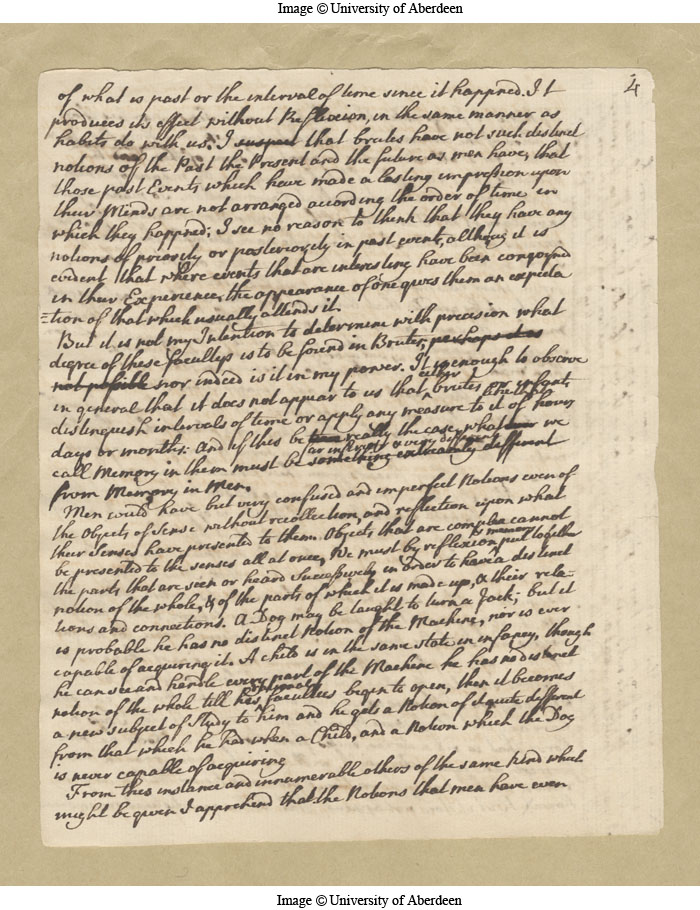 Image © University of Aberdeen
4
of what is past or the interval of time since it happned. It
produces its effect without Reflexion, in the same manner as
habits do with us. I suspect that brutes have not such distinct
notions of the Past the Present and the future as men have, that
those past Events which have made a lasting impression upon
their Minds are not arranged according the order of time in
which they happned; I see no reason to think that they have any
notions of priority or posteriority in past events, altho it is
evident that where events that are interesting have been conjoynd
in their Experience, the appearance of one gives them an expecta
=tion of that which usually attends it.
But it is not my Intention to determine with precision what
degree of these facultys is to be found in Brutes, perhaps it is
not possible nor indeed is it in my power. It is enough to observe
in general that it does not appear to us that either brutes or infants
distinguish intervals of time or apply any measure to it of hours
days or months: And if this be really the case, what we
call Memory in them must be an inferior & very different something extreamly different
from Memory in Men.
Men would have but very confused and imperfect Notions even of
the Objects of Sense without recollection, and reflection upon what
their Senses have presented to them. Objects that are complex cannot
be presented to the senses all at once, We must by reflexion & memory put together
the parts that are seen or heard Successively in order to have a distinct
notion of the whole, & of the parts of which it is made up, & their rela-
tions and connections. A Dog may be taught to turn a Jack; but it
is probable he has no distinct Notion of the Machine, nor is ever
capable of acquiring it. A child is in the same state in infancy, though
he can see and handle every part of the Machine he has no distinct
notion of the whole till his rational faculties begin to open, then it becomes
a new subject of Study to him and he gets a Notion of it quite different
from that which he had when a Child, and a Notion which the Dog
is never capable of acquiring
From this instance and innumerable others of the same kind which
might be given I apprehend that the Notions that men have even
Image © University of Aberdeen